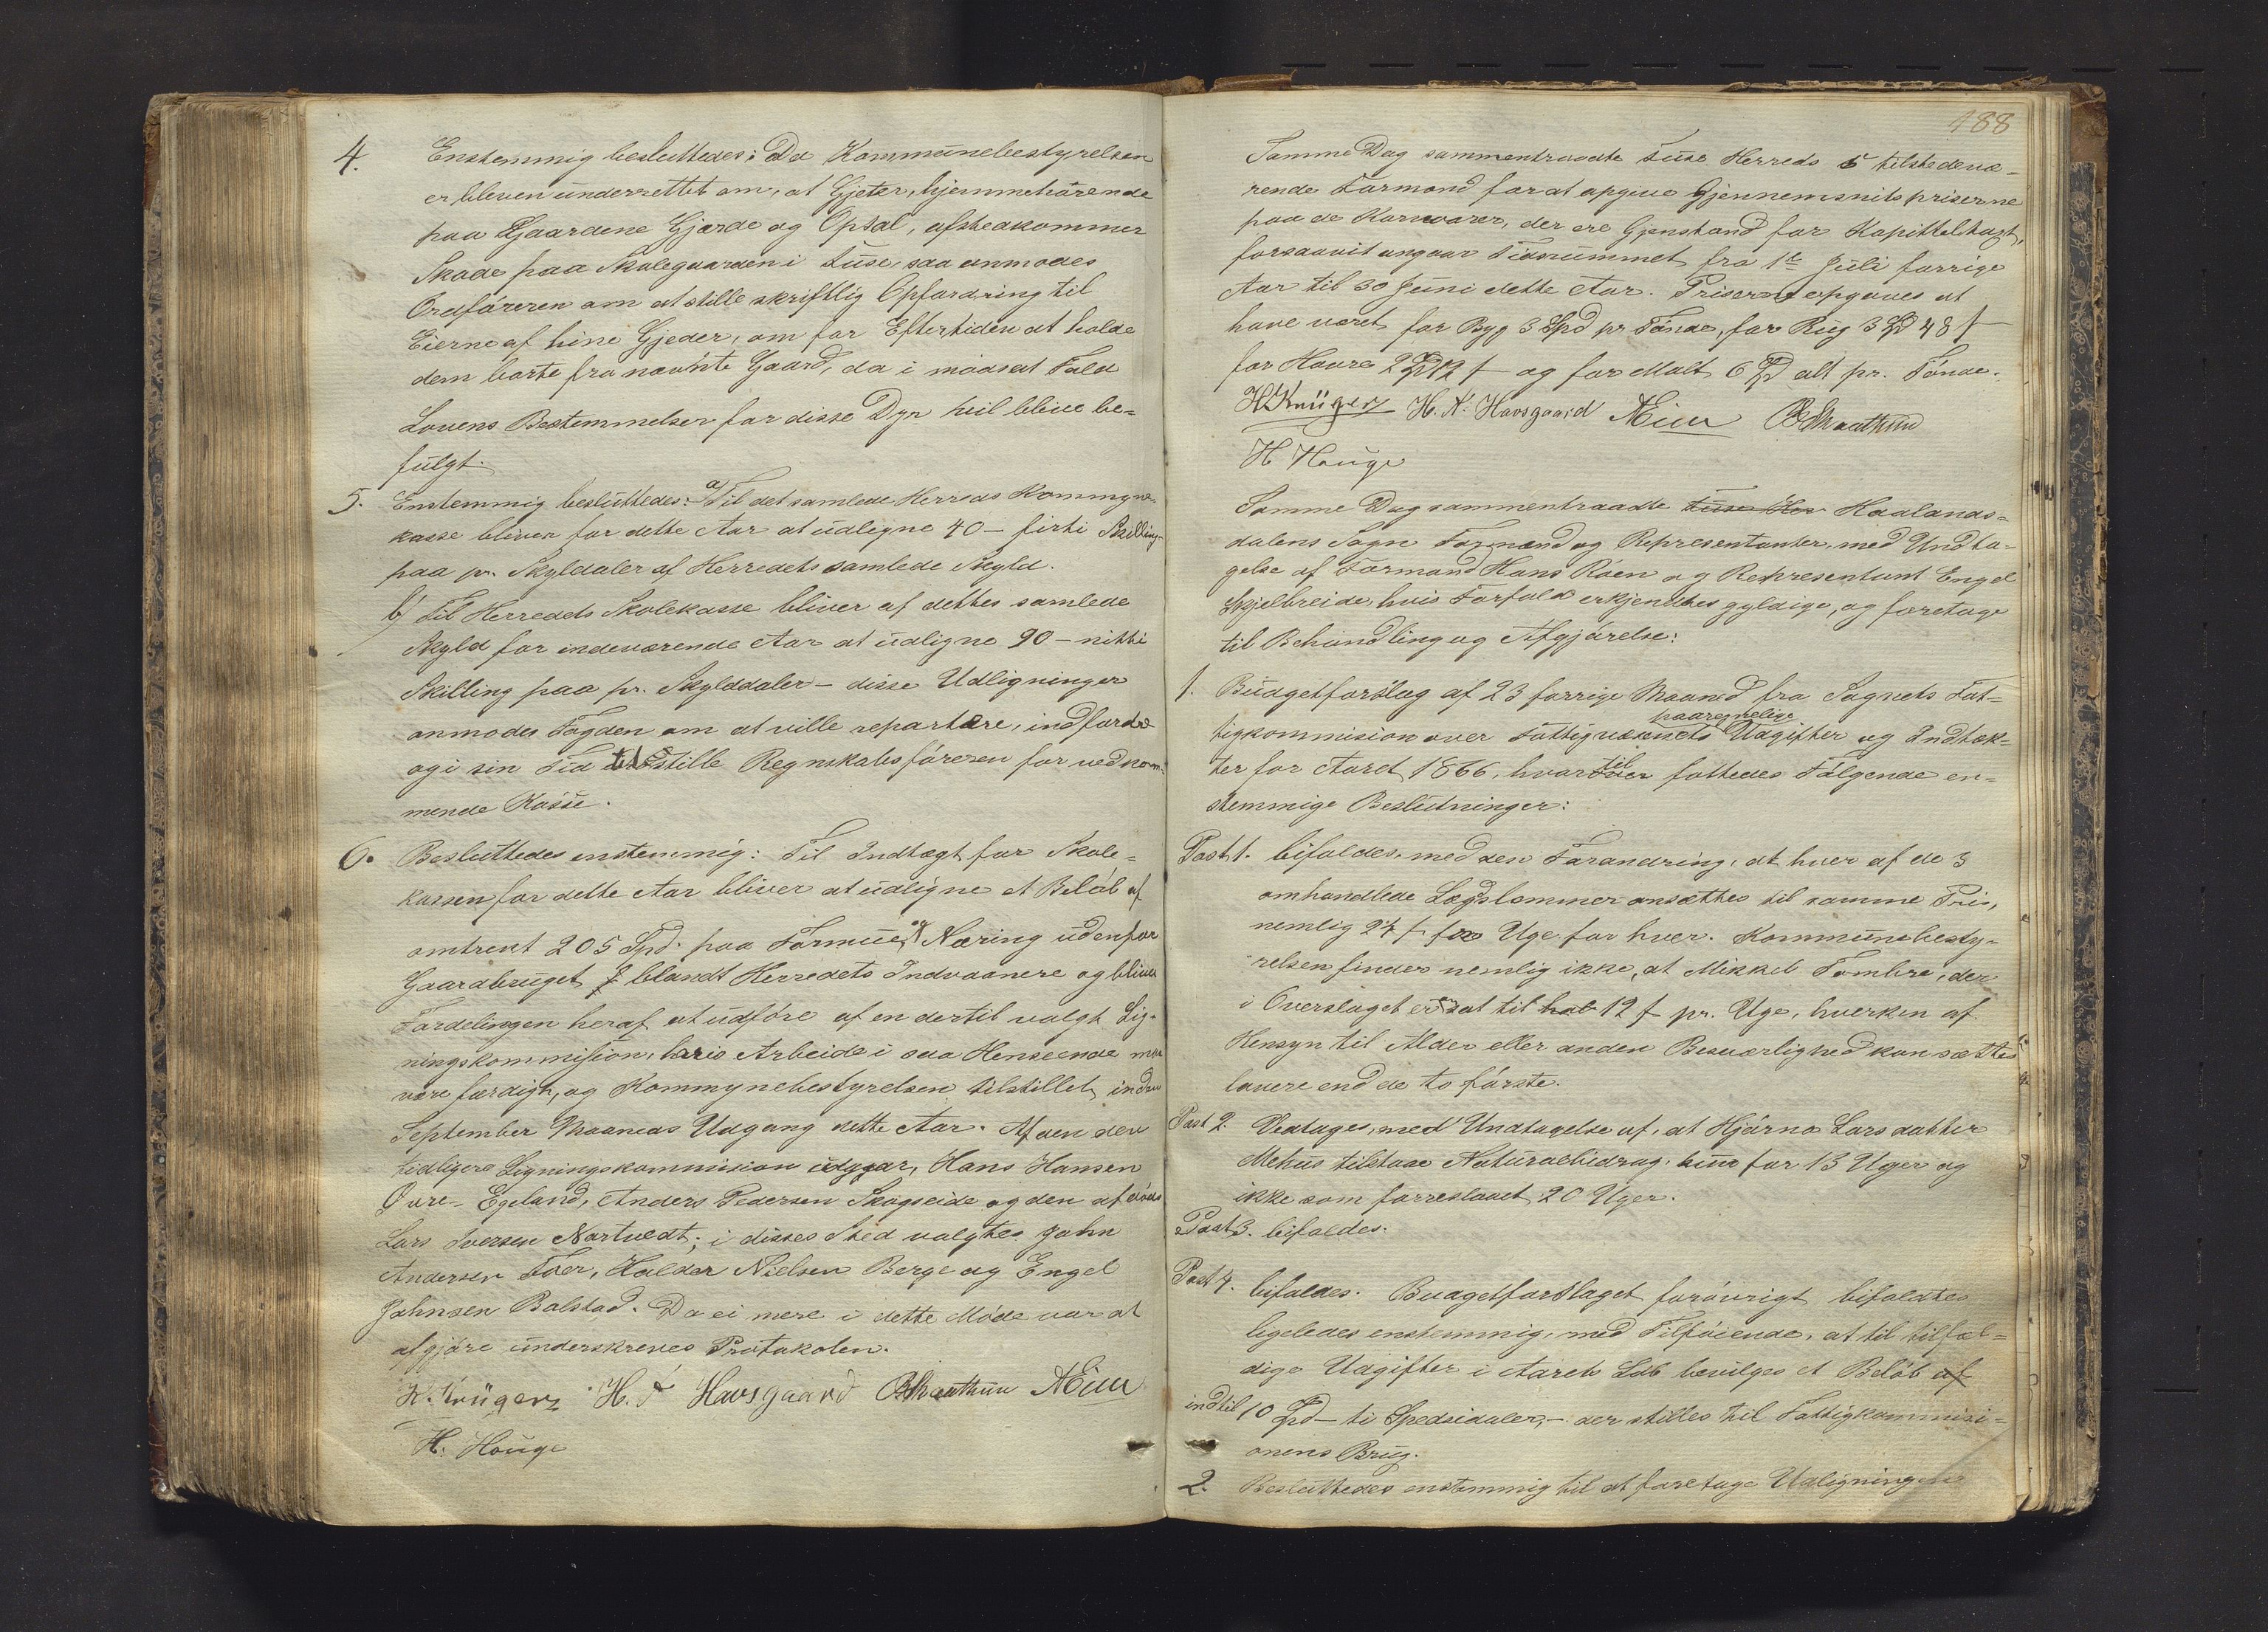 4. Enstemmig besluttedes: Da Kommunebestyrelsen
er bleven underrettet om, at Gjeter, hjemmehørende
paa Gaardene Gjerde og Opsal, afstedkommer
Skade paa Skolegaarden i Fuse, saa anmodes
Ordføreren om at stille skriftlig Opfordring til
Eierne af hine Gjeder, om for Eftertiden at holde
dem borte fra nævnte Gaard, da i modsat Fald
Lovens Bestemmelser for disse Dyr vil blive be-
fulgt.
5. Enstemmig besluttedes: a) Til det samlede Herreds Kommyne-
kasse bliver for dette Aar at udligne 40 – firti Skilling
paa pr. Skyldaler af Herredets samlede Skyld.
b) Til Herredets Skolekasse bliver af dettes samlede
Skyld for indeværende Aar at udligne 90 – nitti
Skilling paa pr. Skylddaler – disse Udligninger
anmodes Fogden om at ville repartere, indfordre
og i sin Tid tilstille Regnskabsføreren for vedkom-
mende Kasse.
6. Besluttedes enstemmig: Til Indtægt for Skole-
kassen for dette Aar bliver at udligne et Beløb af
omtrent 205 Spd. paa Formue og Næring udenfor
Gaardbruget blandt Herredets Indvaanere og bliver
Fordelingen heraf at udføre af en dertil valgt Lig-
ningskommission, hvis Arbeide i saa Henseende maa
være færdigt, og Kommynebestyrelsen tilstillet inden
September Maaneds Udgang dette Aar. Af den den
tidligere Ligningskommission udgaar, Hans Hansen
Øvre-Egeland, Anders Pedersen Skogseide og den afdøde
Lars Iversen Nortvedt; i disses Sted valgtes John
Andersen Tver, Haldor Nielsen Berge og Engel
Johnsen Bolstad. Da ei mere i dette Møde var at
afgjøre underskreves Protokolen.
H. Krüger H. N. Havsgaard
H. Houge
188
Samme Dag sammentraadte Fuse Herreds 5 tilstedevæ-
rende Formænd for at opgive Gjennemsnitspriserne
paa de Kornvarer, der ere Gjenstand for Kapittelstagt,
forsaavit angaar Tidsrummet fra 1te Juli forrige
Aar til 30 Juni dette Aar. Priserne opgaves at
have været for Byg 3 Spd pr Tønde, for Rug 3 Spd 48 ß
for Havre 2 Spd 12 ß og for Malt 6 Spd alt pr. Tønde.
H. Krüger H. N. Havsgaard
H Houge
Samme Dag sammentraadte Fuse Her Haalands-
dalens Sogn Formænd og Representanter, med Undta-
gelse af Formand Hans Røen og Representant Engel
Skjelbreide, hvis Forfald erkjendtes gyldige, og foretoges
til Behandling og Afgjørelse:
1. Budgetforslag af 23 forrige Maaned fra Sognets Fat-
tigkommision over Fattigvæsnets paaregnelige Udgifter og Indtæk-
ter for Aaret 1866, hvortil fattedes Følgende en-
stemmige Beslutninger:
Post 1. bifaldes. med den Forandring, at hver af de 3
omhandlede Lægdslemmer ansættes til samme Pris,
nemlig 24 ß pr Uge for hver. Kommunebesty-
relsen finder nemlig ikke, at Mikkel Tombre, der
i Overslaget er sat til 12 ß pr. Uge, hverken af
Hensyn til Alder eller anden Besværlighed kan sættes
lavere end de to første.
Post 2. Vedtages, med Undtagelse af, at Hjørno Larsdatter
Mehus tilstaae Naturalbidrag kun for 13 Uger og
ikke som forreslaaet 20 Uger.
Post 3. bifaldes.
Post 4. bifaldes. Budgetforslaget forøvrigt bifaldtes
ligeledes enstemmig, med Tilføiende, at til tilfæl-
dige Udgifter i Aarets Løb bevilges et Beløb af
indtil 10 Spd – ti Spedsidaler, – der stilles til Fattigkommisi-
onens Brug.
2. Besluttedes enstemmig til at foretage Udligningen